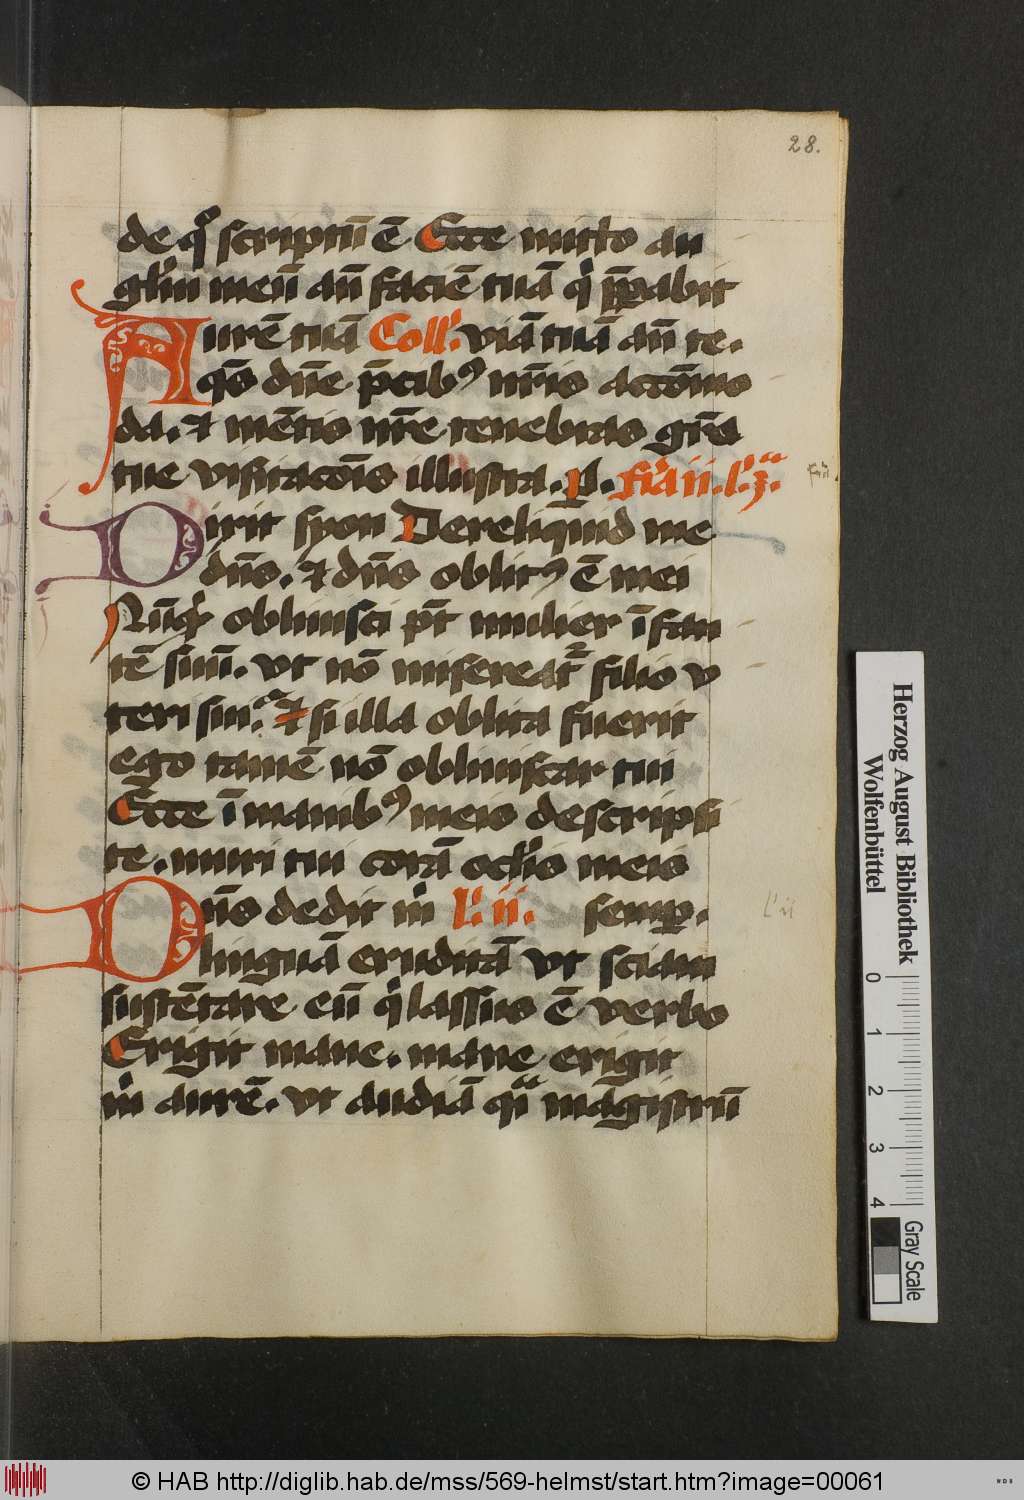 28.
de qͦ scriptū ē Ecce mitto an
glm̄ meū an̄ faciē tuā qͥ p̄parabit
viā tuā an̄ te. Coll'.
Aurē tuā
q̄s dn̄e p̄cibꝰ nr̄is accōmo
da. ⁊ mētis nr̄e tenebras gr̄a
tue visitacōis illustra. p. fr̄a ii. l'. z.ͣ
Dixit syon Dereliquid me
dn̄s. ⁊ dn̄s oblitꝰ ē mei
Nūqͥd oblivisci pt̄ mulier īfan
tē suū. vt nō misereatᷣ filio v
teri sui. ⁊ si illa oblita fuerit
ego tamē nō obliviscar tui
Ecce ī manibꝰ meis descripsi
te. muri tui corā oclis meis
semp.
Dn̄s dedit m̄ L'. ii.
linguā eruditā vt sciam
sustētare eū qͥ lassus ē verbo
Erigit mane. mane erigit
m̄ aurē. vt audiā qͣi magistrū
L' ii
Herzog August Bibliothek
Wolfenbüttel
0 1 2 3 4
Gray Scale
© HAB http://diglib.hab.de/mss/569-helmst/start.htm?image=00061